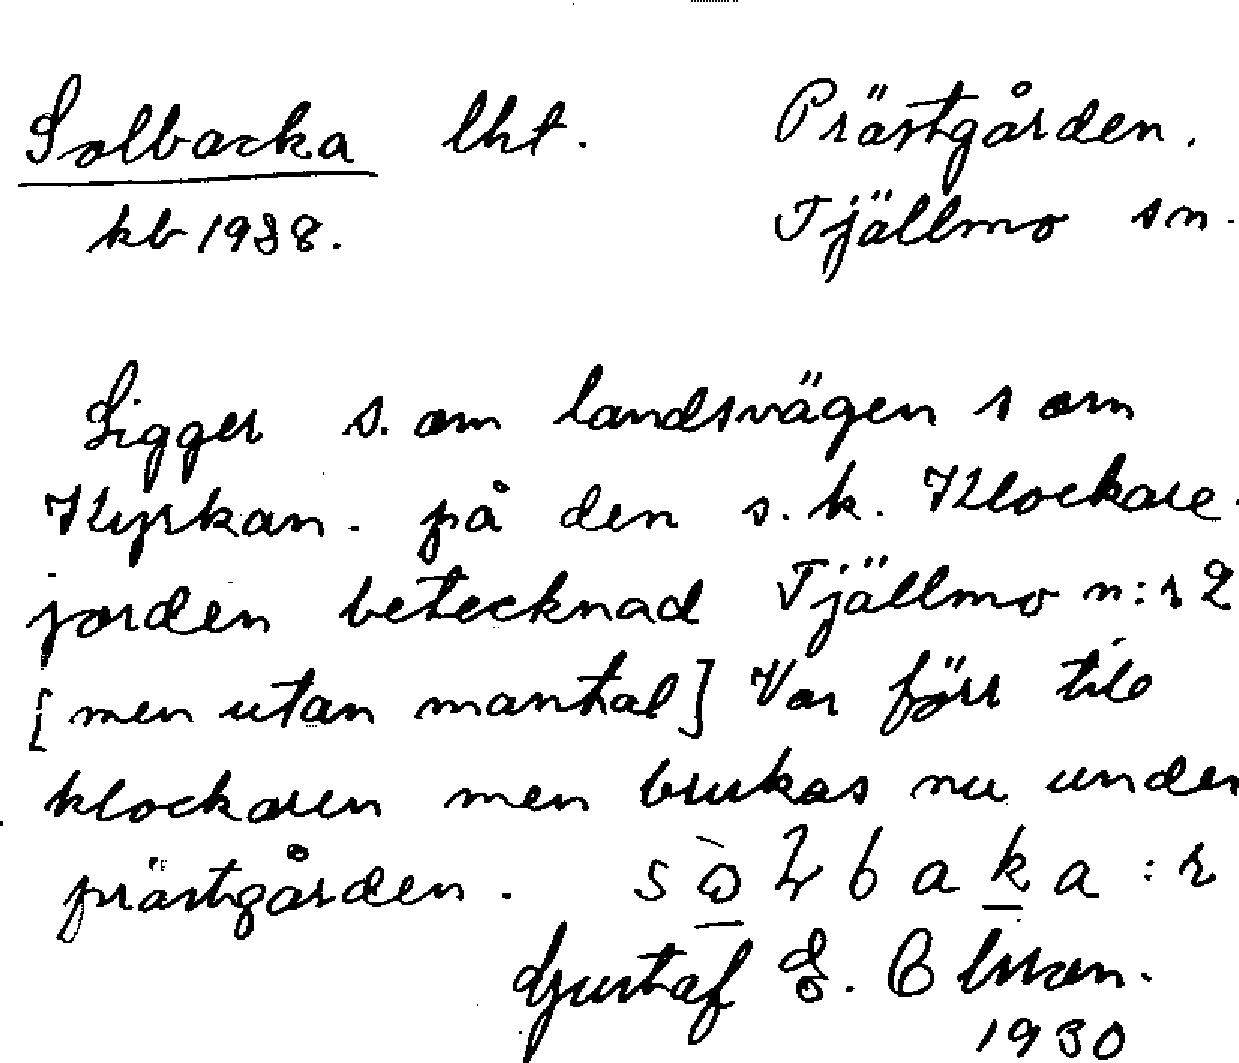 Solbacka lht. Prästgården.
kb 1938. Tjällmo sn.
Ligger s. om landsvägen s om
Kyrkan. på den s.k. Klockare-
jorden betecknad Tjällmo n:r 2
[men utan mantal] Var förr till
klockaren men brukas nu under
prästgården.
Gustaf E.
1930